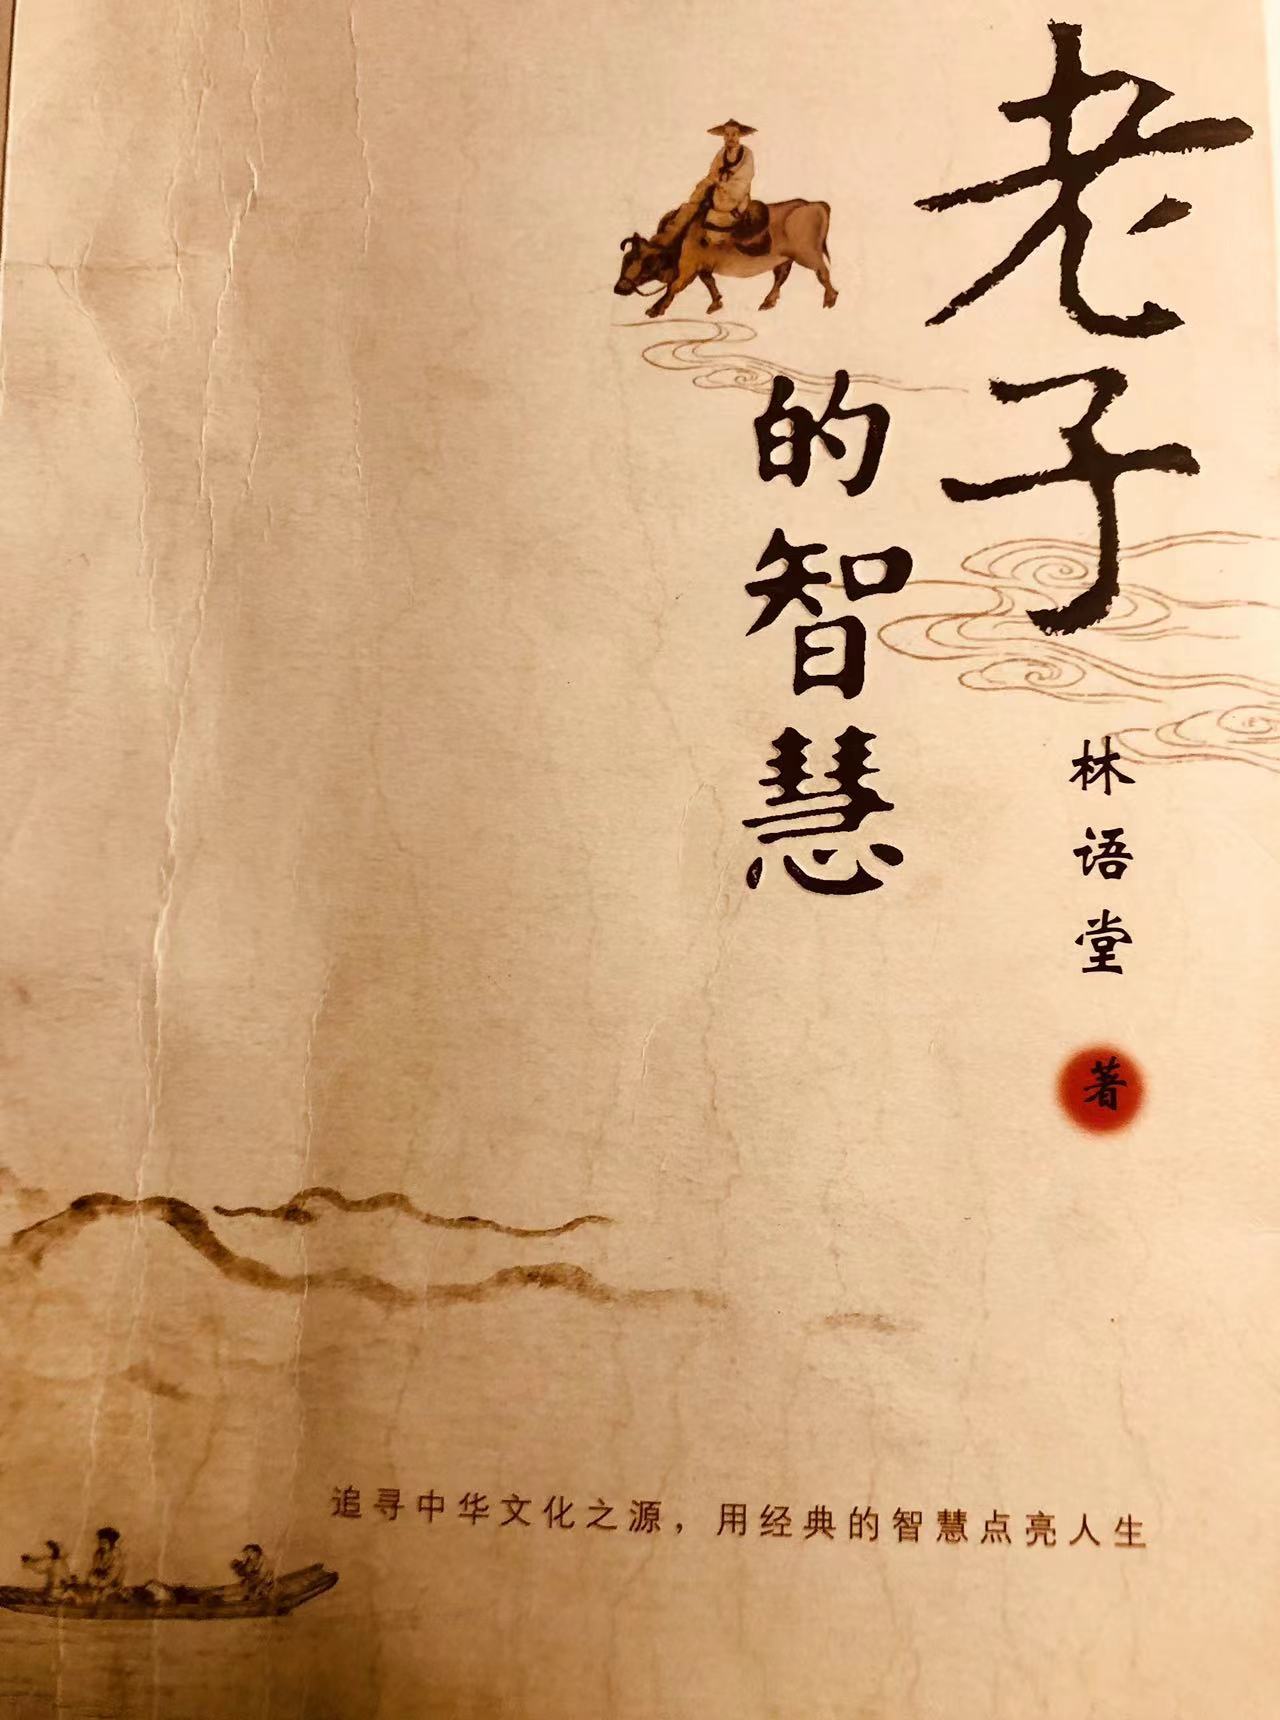 老子
的智慧
林语堂
著
追寻中华文化之源，用经典的智慧点亮人生